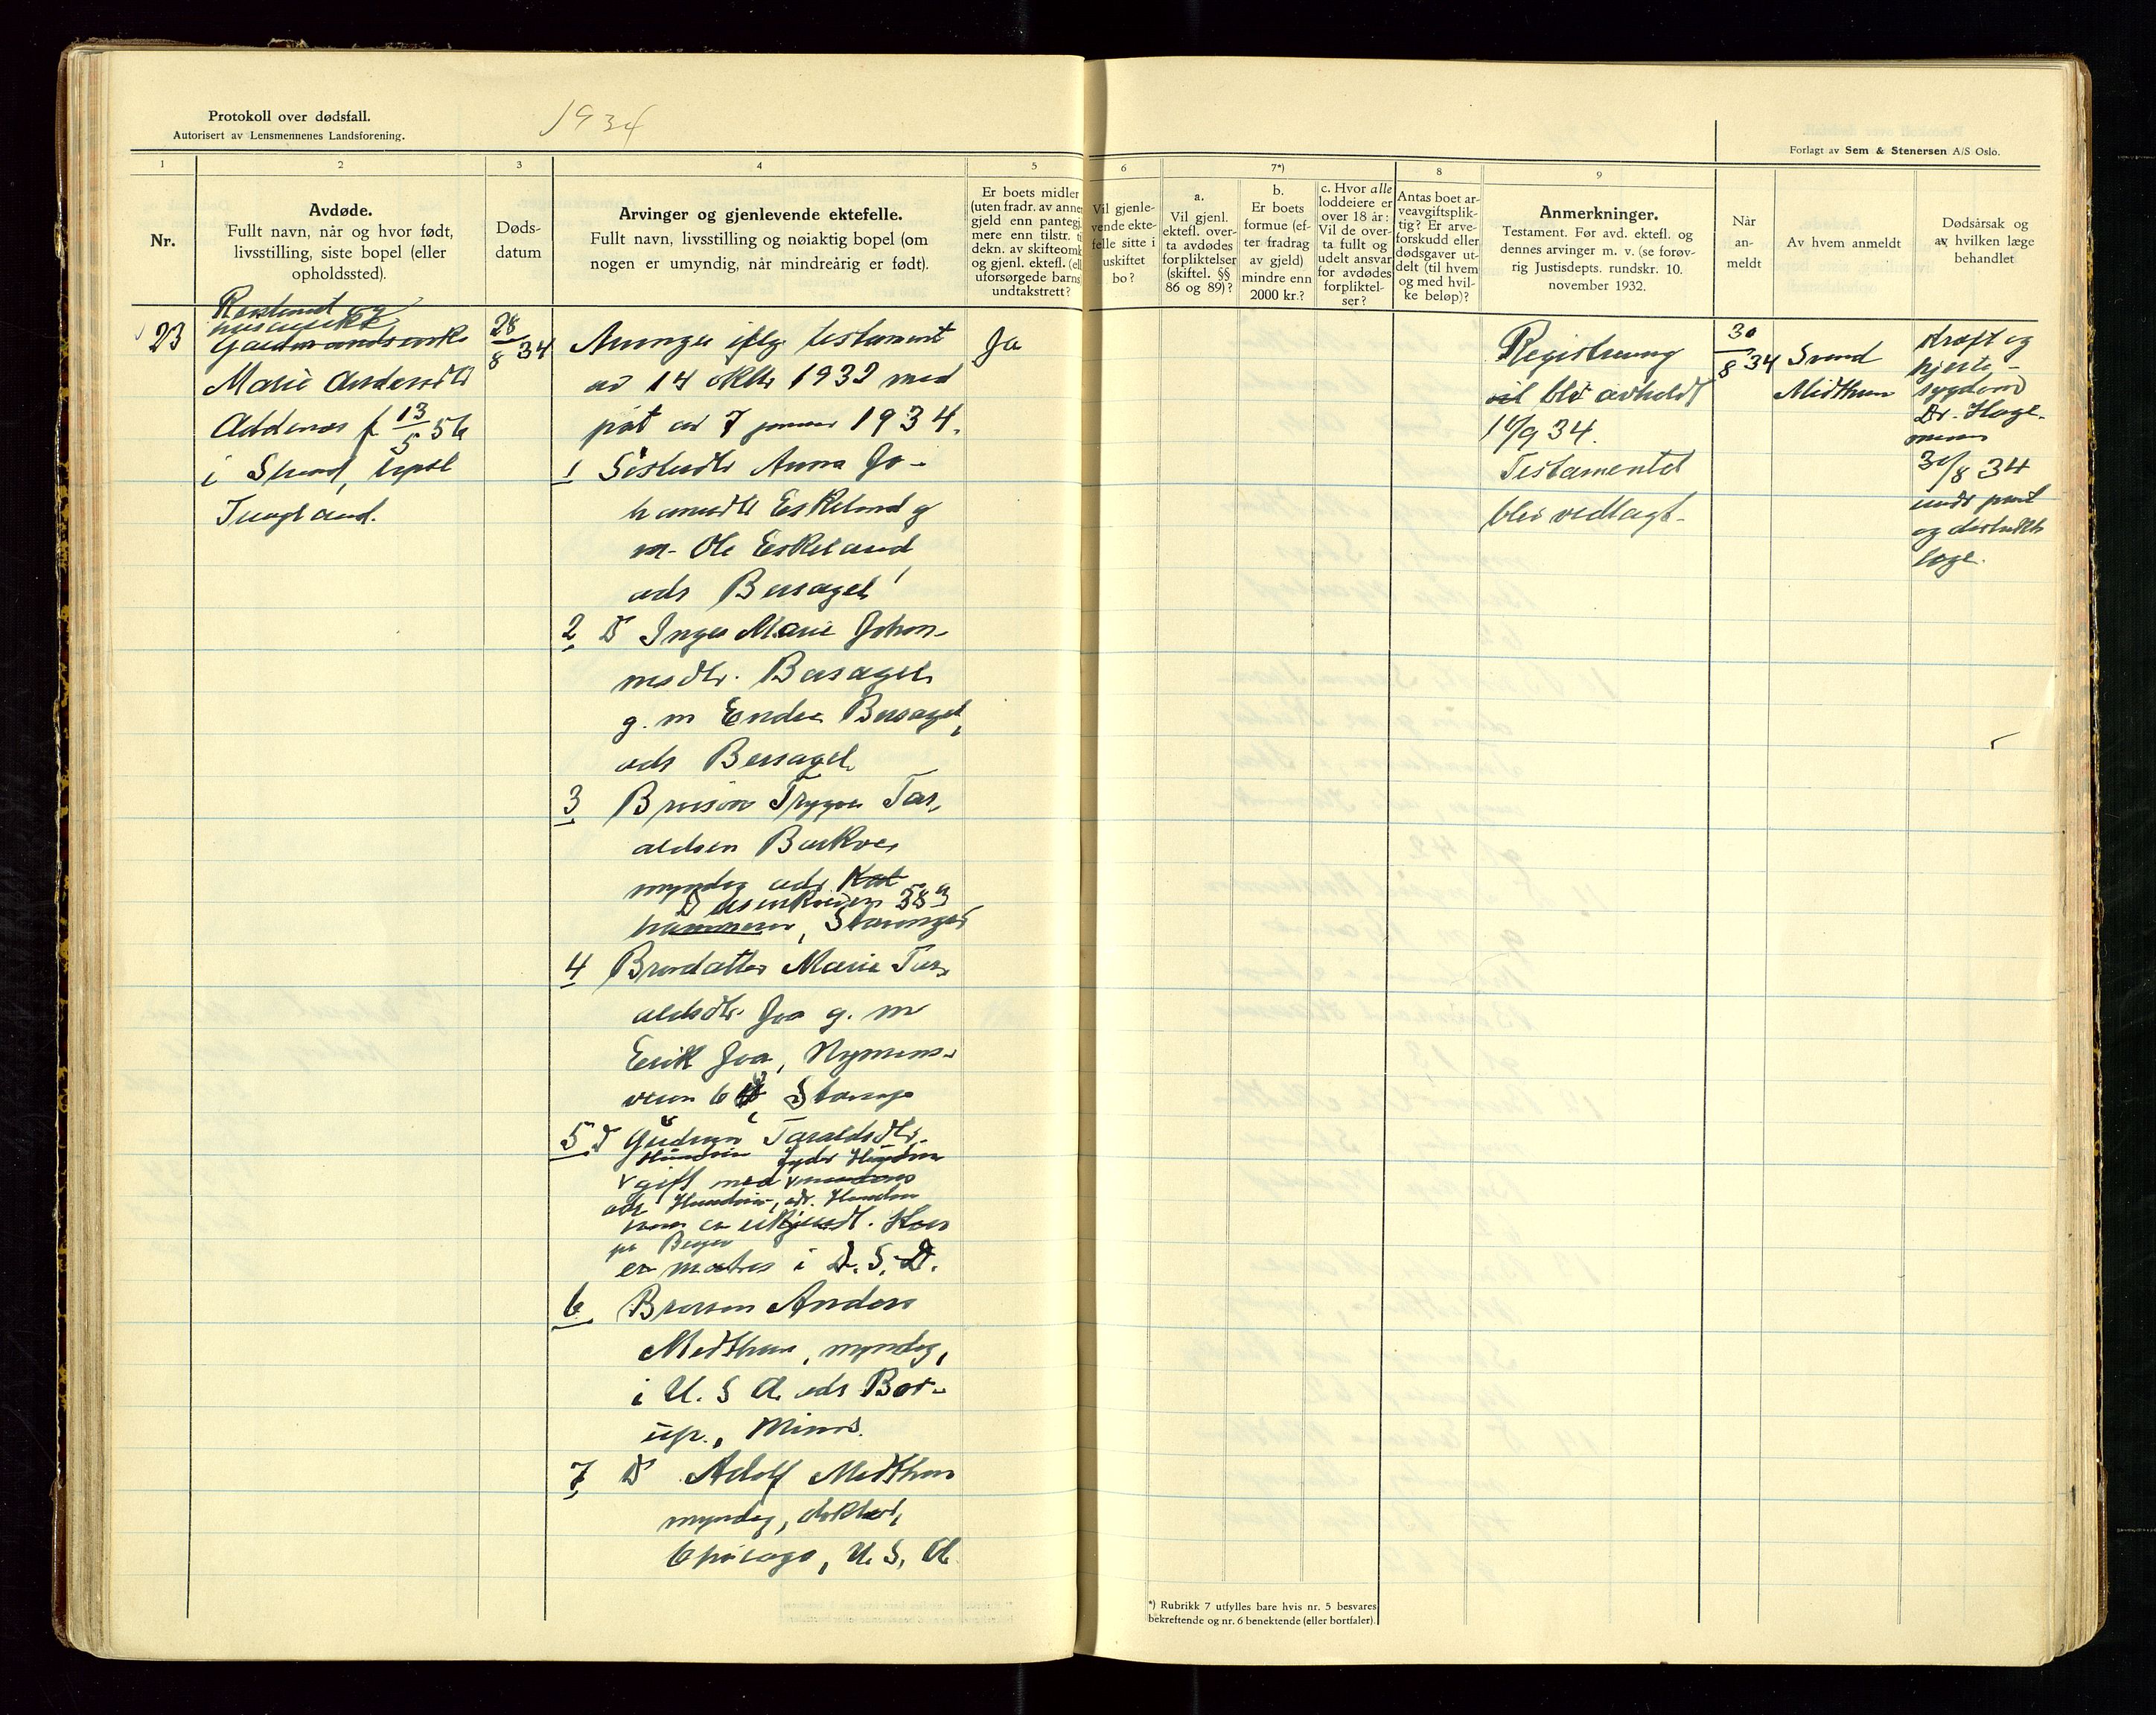 Protokoll over dødsfall.
Autorisert av Lensmennenes Landsforening.
1934
Forlagt av Sem & Stenersen A/S Oslo.
1
2
3
4
5
6
7*)
8
9
Nr.
Avdøde.
Fullt navn, når og hvor født,
livsstilling, siste bopel (eller
opholdssted).
Døds-
datum
Arvinger og gjenlevende ektefelle.
Fullt navn, livsstilling og nøiaktig bopel (om
nogen er umyndig, når mindreårig er født).
Er boets midler
(uten fradr. av annen
gjeld enn pantegj.
mere enn tilstr. ti
dekn. av skifteomk
og gjenl. ektef. (ell
uforsørgede barns
undtakstrett?
Vil gjenle-
vende ekte-
felle sitte i
uskiftet
bo?
a.
Vil gjenl.
ektefl. over-
ta avdødes
forpliktelser
(skiftel. §§
86 og 89)?
b.
Er boets
formue (ef-
ter fradrag
av gjeld)
mindre enn
2000 kr.?
c. Hvor alle
loddeiere er
over 18 år:
Vil de over-
ta fullt og
udelt ansvar
for avdødes
forpliktel-
ser?
Antas boet ar-
veavgiftsplik-
tig? Er arve-
forskudd eller
dødsgaver ut-
delt (til hvem
og med hvil-
ke beløp)?
Anmerkninger.
Testament. Før avd. ektefl. og
dennes arvinger m. v. (se forøv-
rig Justisdepts. rundskr. 10.
november 1932.
Når
an-
meldt
Av hvem anmeldt
Dødsårsak og
av hvilken læge
behandlet
23
Gårdmandsenke
Marie Andersdtr
Addenes f 13/5 56
i Strand, bopel
Tungland.
28/8 34
Arvinger iflg. testament
av 14 oktbr 1932 med
påt av 7 januar 1934.
1 Søsterdtr Anna Jo-
hannesdtr Eskeland g
m. Ole Eskeland,
adr Bersagel
2 D Inger Marie Johan-
nesdtr. Bersagel
g. m Endre Bersagel,
adr Bersagel
3 Brorsøn Trygve Tar-
aldsen Barkved
myndig adr. Kat
38 3
hammeren, Stavanger
4 Brordatter Marie Tar-
aldsdtr. Joa g. m
Erik Joa, Nymans-
veien 6 Stavang
5 D Gudrun Taraldsdtr.
gift med
navn er ukjendt. Han
på Bergen
er matros i D. S. D.
6 Brorson Anders
Medthun, myndig,
i U. S A. adr Bar-
up., Minns.
7 D Adolf Medthun
myndig, doktor,
Chicago, U. S. A.
Ja
Registrering
vil blev avholdt
10/9 34.
Testamentet
blev vedlagt.
30/8 34
Svend
Midthun
Kræft og
hjerte-
sygdom
Dr. Hage-
31/8 34
undr prot
og distrikts
læge.
*) Rubrikk 7 utfylles bare hvis nr. 5 besvares
bekreftende og nr. 6 benektende (eller bortfaler).